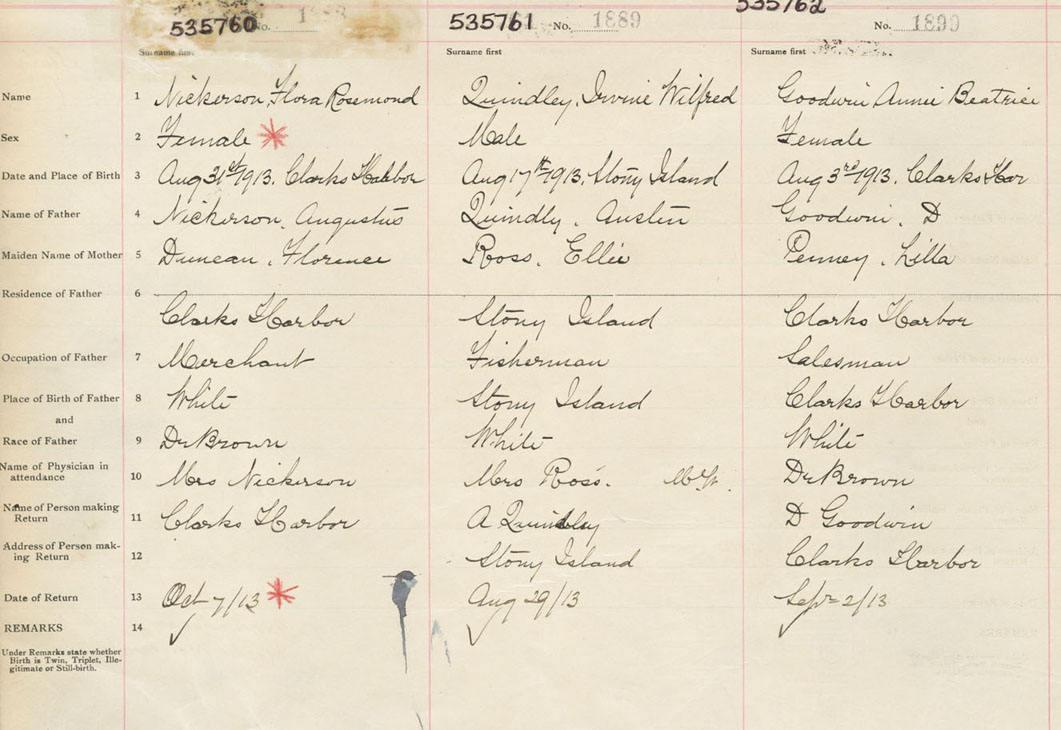 535760 No. 535761 No. 1889 535762 No. 1890
Surname first Surname first Surname first
Name 1 Nickerson, Flora Rosemond Quindley, Irvine Wilfred Goodwin Annie Beatrice
Sex 2 Female Male Female
Date and Place of Birth 3 Aug 31st 1913. Clarks Harbor Aug 17th 1913. Stony Island Aug 3rd 1913. Clarks Har
Name of Father 4 Nickerson, Augustus Quindly, Austin Goodwin, D
Maiden Name of Mother 5 Duncan, Florence Ross, Ellie Penney, Lilla
Residence of Father 6
Clarks Harbor Stony Island Clarks Harbor
Occupation of Father 7 Merchant Fisherman Salesman
Place of Birth of Father 8 White Stony Island Clarks Harbor
and
Race of Father 9 Dr Brown White White
Name of Physician in attendance 10 Mrs Nickerson Mrs Ross. Dr Brown
Name of Person making Return 11 Clarks Harbor A Quindley D Goodwin
Address of Person making Return 12 Stony Island Clarks Harbor
Date of Return 13 Oct 7/13 Aug 29/13 Sept 2/13
REMARKS 14
Under Remarks state whether
Birth is Twin, Triplet, Ille-
gitimate or Still-birth.